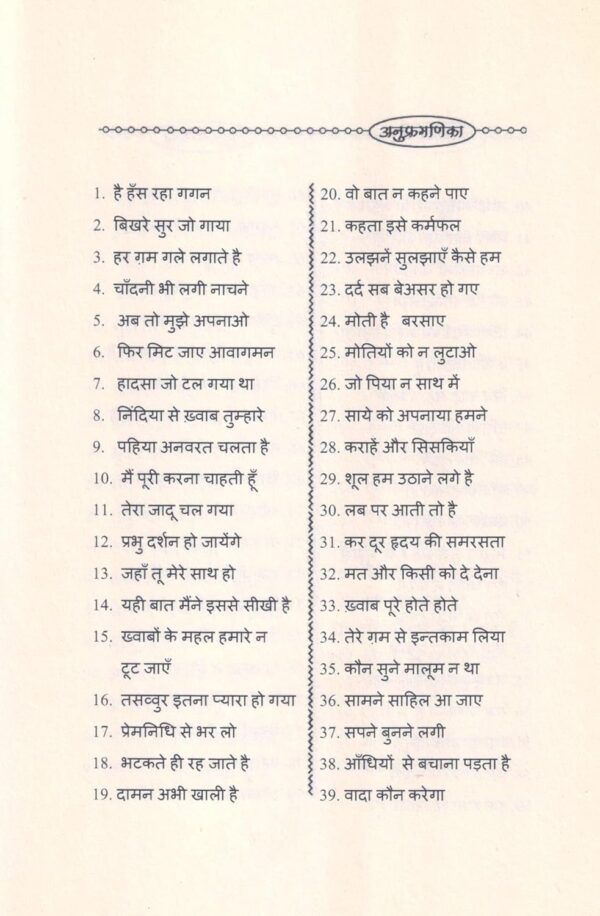 अनुक्रमणिका
1. है हँस रहा गगन
2. बिखरे सुर जो गाया
3. हर ग़म गले लगाते है
4. चाँदनी भी लगी नाचने
5. अब तो मुझे अपनाओ
6. फिर मिट जाए आवागमन
7. हादसा जो टल गया था
8. निंदिया से ख़्वाब तुम्हारे
9. पहिया अनवरत चलता है
10. मैं पूरी करना चाहती हूँ
11. तेरा जादू चल गया
12. प्रभु दर्शन हो जायेंगे
13. जहाँ तू मेरे साथ हो
14. यही बात मैंने इससे सीखी है
15. ख्वाबों के महल हमारे न
टूट जाएँ
16. तसव्वुर इतना प्यारा हो गया
17. प्रेमनिधि से भर लो
18. भटकते ही रह जाते है
19. दामन अभी खाली है
20. वो बात न कहने पाए
21. कहता इसे कर्मफल
22. उलझनें सुलझाएँ कैसे हम
23. दर्द सब बेअसर हो गए
24. मोती है बरसाए
25. मोतियों को न लुटाओ
26. जो पिया न साथ में
27. साये को अपनाया हमने
28. कराहें और सिसकियाँ
29. शूल हम उठाने लगे है
30. लब पर आती तो है
31. कर दूर हृदय की समरसता
32. मत और किसी को दे देना
33. ख़्वाब पूरे होते होते
34. तेरे ग़म से इन्तकाम लिया
35. कौन सुने मालूम न था
36. सामने साहिल आ जाए
37. सपने बुनने लगी
38. आँधियों से बचाना पड़ता है
39. वादा कौन करेगा